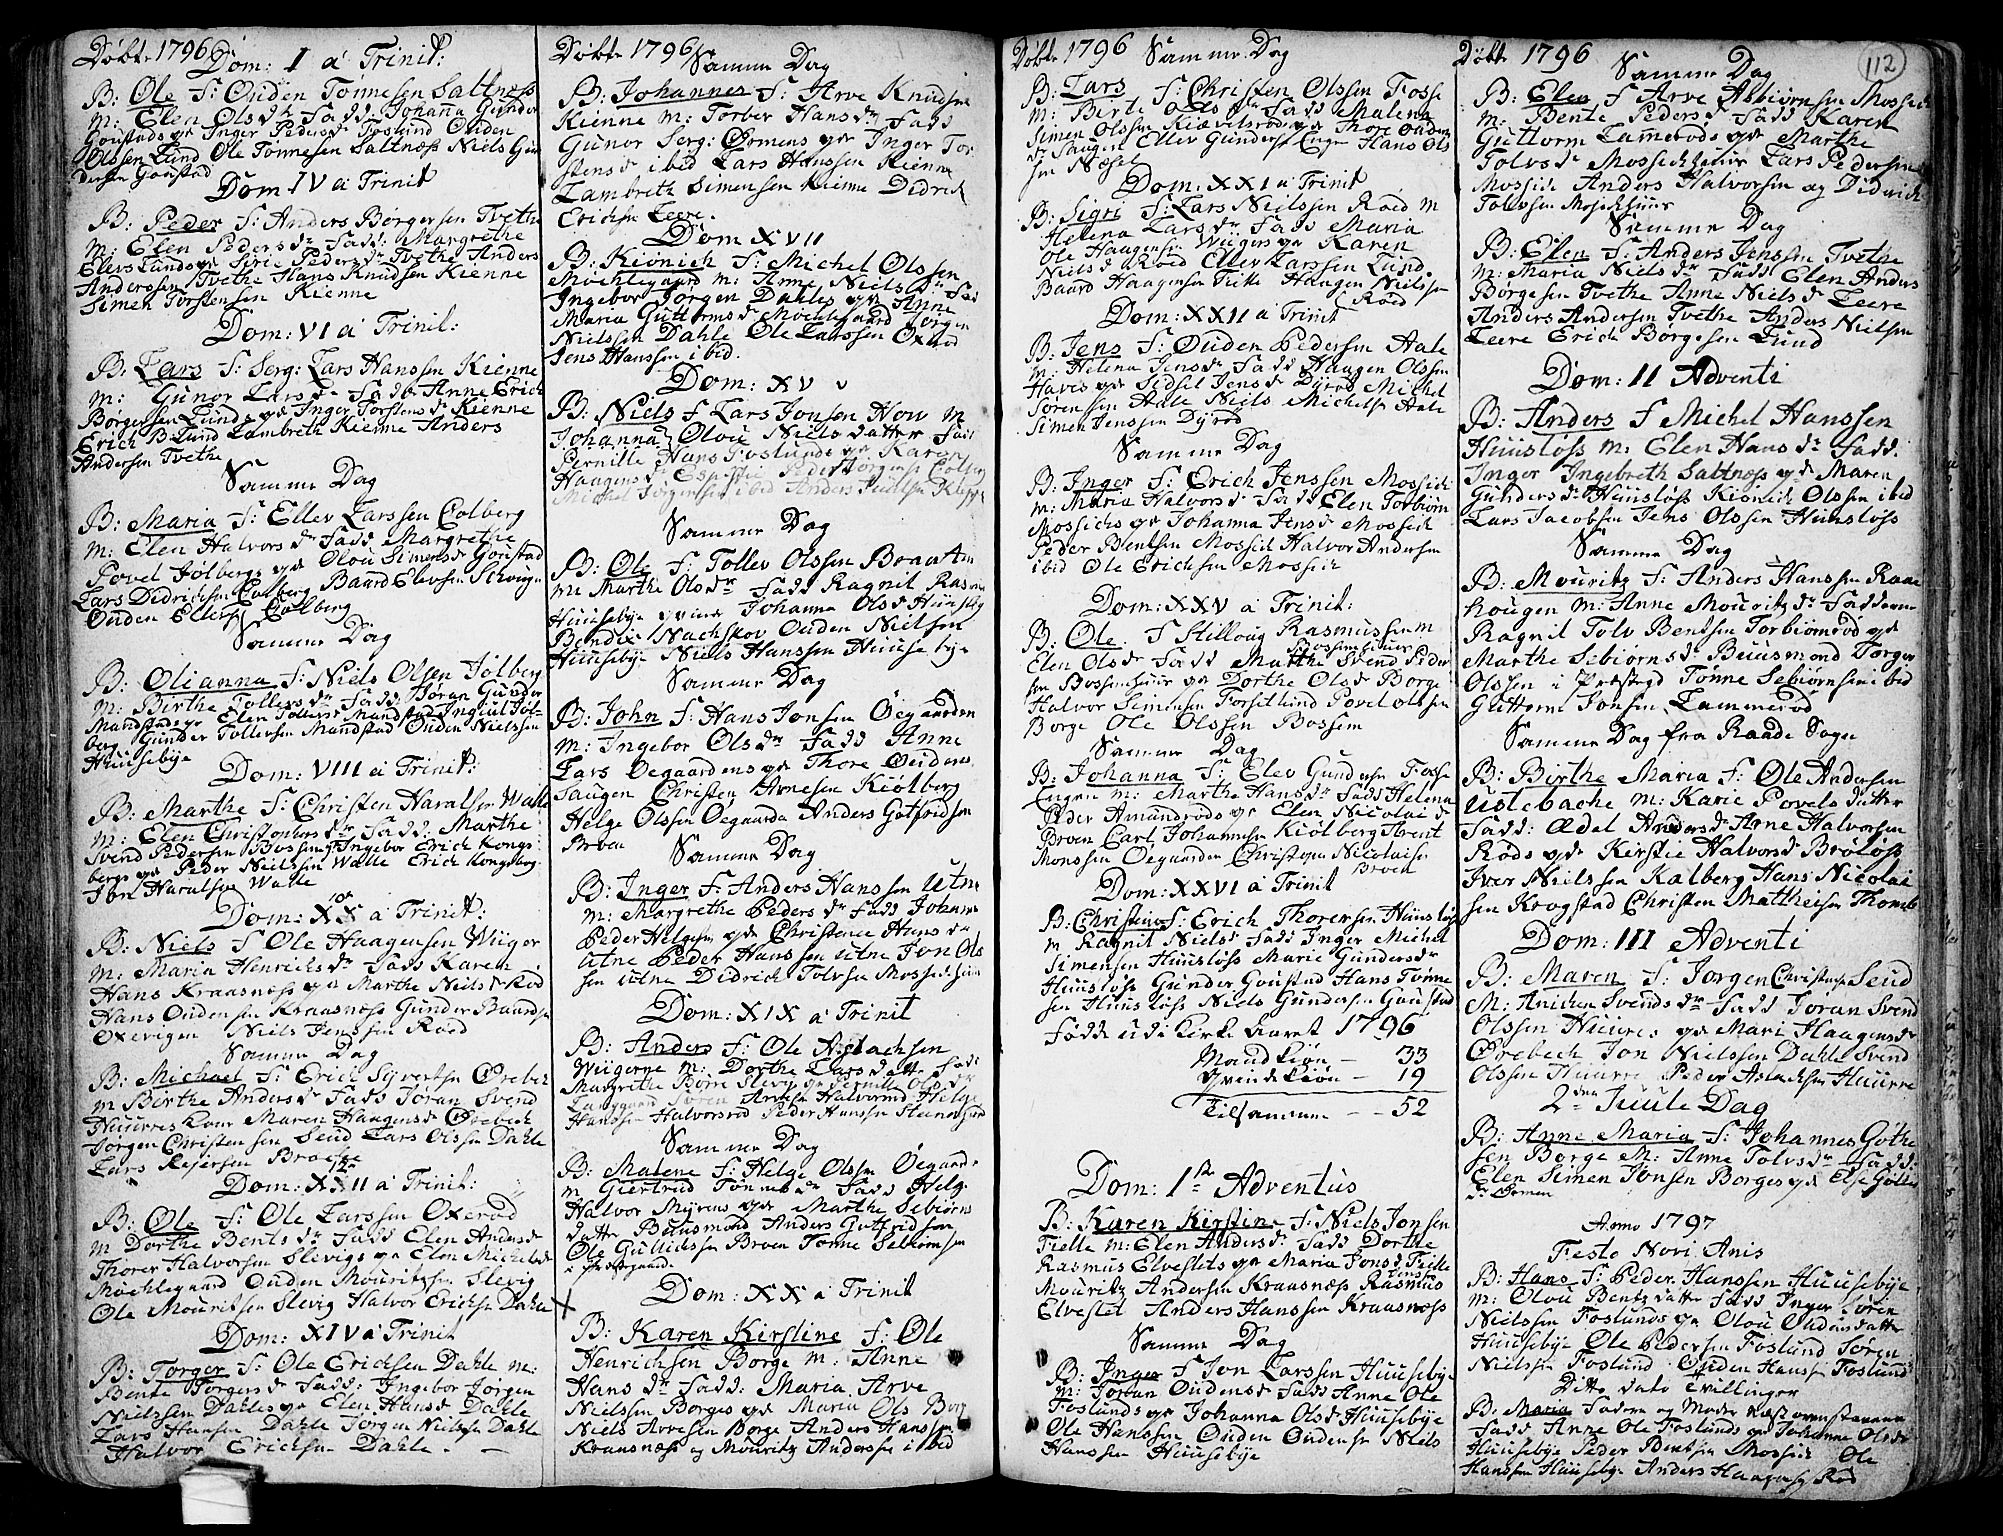 Døbte 1796
Dom: I a Trinit:
B: Ole F: Ouden Tønnesen Saltnæss
M: Elen Olsdr Fadd: Johanna Gunder
Goustads qde Inger Pedersdr Foslund Ouden
Olssen Lund Ole Tønnesen Saltnæss Niels Gun
dersen Goustad
Dom IV a Trinit
B: Peder F: Anders Børgersen Tvethe
M: Elen Pedersdr Fadd: Margrethe
Elevs Lunds qde Sirie Pedersdr Tvethe Anders
Anderssen Tvethe Hans Knudsen Kienne
Simen Torstensen Kienne
Dom: VI a Trinit:
B. Lars F: Serg: Lars Hanssen Kienne
M: Gunor Larsdr Fadd: Anne Erich
Børgersen Lunds qde Inger Torstensdr Kienne
Erich B. Lund Lambreth Kienne Anders
Andersen Tvethe
Samme Dag
B: Maria F: Ellev Larssen Colberg
M: Elen Halvorsdr Fadd Margrethe
Povel Jølbergs qde Olou Simensdr Goustad
Lars Didrichsen Colberg Baard Elevsen
Ouden Ellefs Colberg
Samme Dag
B: Olianna F: Niels Olsen Jølberg
M: Birthe Tollersdr Fadd: Jøran Gunder
Mandstads qde Elen Tollersdr Mandstad Ingiul Jøl-
berg Gunder Tollersen Mandstad Ouden Nielssen
Huusebÿe
Dom: VIII a Trinit:
B: Marthe F: Christen Haralsen Walle
M: Elen Christophersdr Fadd: Marthe
Svend Pedersen Ingebor Erich Kongs
bergs qde Peder Nielssen Walle Erich Kongsberg
Jon Haralsen Walle
Dom: X a Trinit:
B: Niels F Ole Haagensen Wiiger
M: Maria Henrichsdr Fadd Karen
Hans Kraasnæss qde Marthe Nielsdr Röd
Hans Oudensen Kraasnæss Gunder Baardsen
Oxevigen Niels Jenssen Röed
Samme Dag
B: Michael F: Erich Syvertsen Ørebek
M Birthe Andersdr Fadd Jøran Svend
Huurres Maren Haagensdr Ørebech
Jørgen Christensen Seud Lars Olssen Dahle
Lars Rejersen
Dom: XII a Trinit:
B: Ole F: Ole Larssen Oxerod
M Dorthe Bentsdr Fadd Elen Andersdr
Thorer Halvorsen Slevigs qde Elen Michelsdr
Møchlegaard Ouden Mouritzsen Slevig
Ole Mouritsen Slevig Halvor Erichsen Dahle
Dom: XIV a Trinit
B: Torger F: Ole Erichsen Dahle M:
Bente Torgersdr Fadd: Ingebor Jørgen
Nielssen Dahles qde Elen Hansdr Dahle
Lars Hanssen Dahle Jørgen Nielssen Dahle
Halvor Erichsen Dahle.
Døbte 1796
Samme Dag
B: Johannes F: Arve Knudsen
Kienne M: Torber Hansdr Fadd
Gunor Serg: Ormens qde Inger Tor
stensdr ibid Lars Hanssen Kienne
Lambreth Simensen Kienne Didrich
Erichsen Leere.
Dom XVII
B: Kiönich F: Michel Olssen
Möchlegaard M: Anne Nielsdr Fad
Ingebor Jörgen Dahles qde Anne
Maria Guttormsdr Möchlegaard Jörgen
Nielssen Dahle Ole Larssen Oxerod
Jens Hanssen ibid.
Dom: XV
B: Niels F Lars Jonsen How M
Johanna Olou Nielsdatter Fad
Pernille Hans Foslunds qde Karen
Haagensdr Peder Jörgensen Colberg
Michel Jörgensen ibid Anders Juulsen
Samme Dag
B: Ole F: Tollev Olssen Braaten
M: Marthe Olsdr Fadd Ragnil Rasm
Huusebÿe qvinde Johanna Olsdr Huusebÿ
Bendix Nachskov Ouden Nielsen
Huusebÿe Niels Hanssen Huusebÿe
Samme Dag
B: John F: Hans Jonsen Öegaarden
M: Ingebor Olsdr Fadd Anne
Lars Öegaardens qde Thore Oudens
Saugen Christen Arnesen Kiölberg
Helge Olssen Öegaarden Anders Gotfridsen
Broen
Samme Dag
B: Inger F: Anders Hanssen Utne
M: Margrethe Pedersdr Fadd Johanna
Peder Helgesen qde Christence Hansdr
Utne Peder Hanssen Utne Jon Ols
sen Utne Didrich Tolvsen Mossichhuus
Dom: XIX a Trinit
B: Anders F: Ole Aslachsen
Wiigerne M: Dorthe Larsdatter Fad:
Margrethe Börre Slevigs qde Pernille Olsdr
Sören Arnesen Halvorsröd Helge
Hanssen Halvorsröd Peder Hanssen
Samme Dag
B: Malene F: Helge Olssen Öegaard
M Giertrud Tønnesdr Fadd Helge
Halvor Myrens qde Marthe Sebiörns
datter Buusmond Anders Gutfridsen
Ole Gulichssen Broen Tønne Sebiörnsen
i Præstgaard
Dom: XX a Trinit
B: Karen Kirstine F: Ole
Henrichsen Borge M: Anne
Hansdr Fadd: Maria Arve
Nielssen Borges qde Maria Ols Borg
Niels Arvesen Borge Anders Hanssen
Kraasnæss og Mouritz Anderssen ibid
Døbte 1796 Samme Dag
B: Lars F: Christen Olssen Fosse
M: Birte Olsdr Fadd Malena
Simen Olssen Kiævelsröds qde Thore Ouden
dr Saugen Ellev Gunders Enge Hans Ols
sen Næsel
Dom: XXI a Trinit
B: Sigri F: Lars Nielssen Röed M
Helena Larsdr Fadd Maria
Ole Haagensen Wiigers qde Karen
Nielsdr Röed Ellev Larssen Lund
Baard Haagensen Fikke Haagen Nielssen
Röed
Dom: XXII a Trinit
B: Jens F: Ouden Pedersen Aale
M: Helena Jensdr Fadd Haagen Olssen
Haves qde Sidsel Jensdr Dÿröd Michel
Sörensen Aale Niels Michelsen Aale
Simen Jenssen Dÿröd
Samme Dag
B: Inger F: Erich Jenssen Mossich
M: Maria Halvorsdr Fadd Elen Torbiörn
Mossichs qde Johanna Jensdr Mossich
Peder Bentsen Mossich Halvor Andersen
ibid Ole Erichsen Mossich
Dom: XXV a Trinit:
B: Ole F Stilloug Rasmussen M
Elen Olsdr Fadd Marthe Svend Peder
sen Bossenhuus qde Dorthe Olsdr Borge
Halvor Simensen Forsetlund Povel Olssen
Borge Ole Olssen Bossem
Samme Dag
B: Johanna F: Elev Gundersen Fosse
Engen M: Marthe Hansdr Fadd Helena
Peder Amundröds qde Elen Nicolaidr
Broen Carl Johannesen Kiölberg Arent
Monssen Öegaarden Christopher Nicolaisen
Broen
Dom: XXVI a Trinit
B: Christine F: Erich Thorersen Huuslöss
M Ragnil Nielsdr Fadd Inger Michel
Simensen Huuslöss Marie Gundersdr
Huuslöss Gunder Goustad Hans Tønne
sen Huuslöss Niels Gundersen Goustad
Födde udi Kirke Aaret 1796
Mandkiön — 33
Qvindekiön — 19
Tilsammen — 52
Dom: 1ste Adventus
B: Karen Kirstine F: Niels Jonsen
Fielle M: Elen Andersdr Fadd Dorthe
Rasmus Elvestets qde Maria Jonsdr Fielle
Mouritz Andersen Kraasnæss Rasmus
Elvestet Anders Hanssen Kraasnæss
Samme Dag
B: Inger F Jon Larssen Huusebÿe
M: Jöran Oudensdr Fadd Anne Ole
Foslunds qde Johanna Olsdr Huusebÿe
Ole Hanssen Ouden Oudensen Niels
Hanssen Huusebÿe
Døbte 1796
112
Samme Dag
B: Elen F Arve Asbiörnsen Mossich
M: Bente Pedersdr Fadd Karen
Guttorm Lammeröds qde Marthe
Tolvsdr Mossichhuus Lars Pedersen
Mossich Anders Halvorsen og Didrich
Tolvsen Mosichhuus
Samme Dag
B: Elen F: Anders Jenssen Tvethe
M: Maria Nielsdr Fadd Elen Anders
Børgesen Tvethe Anne Nielsdr Leere
Anders Andersen Tvethe Anders Nielsen
Leere Erich Børgesen Lund
Dom: II Adventi
B: Anders F Michel Hanssen
Huuslöss M: Elen Hansdr Fadd.
Inger Ingebreth Saltnæss qde Maren
Gundersdr Huuslöss Kiönich Olssen ibid
Lars Jacobsen Jens Olssen Huuslöss
Samme Dag
B: Mouritz F: Anders Hanssen Raae
hougen M: Anne Mouritzdr Fadderne
Ragnil Tolv Bentsen Torbiörnröd qde
Marthe Sebiörnsdr Buusmond Torger
Olssen i Præstegd Tønne Sebiörnsen ibid
Guttorm Jonsen Lammeröd
Samme Dag fra Raade Sogn
B: Birthe Maria F: Ole Andersen
Ustebache M: Karie Povelsdatter
Fadd: Ædel Andersdr Arne Halvorsen
Röds qde Kirstie Halvorsdr Brölöss
Iver Nielssen Kalberg Hans Nicolai
sen Krogstad Christen Mattheisen Thomb
Dom: III Adventi
B: Maren F: Jørgen Christensen Seud
M: Anichen Svendsdr Fadd Jöran Svend
Olssen Huures qde Mari Haagensdr
Ørebech Jon Nielssen Dahle Svend
Olssen Huurre Peder Aslachsen Huurre
2den Juule Dag
B: Anne Maria F: Johannes Göthe
sen Borge M: Anne Tolvsdr Fadd:
Elen Simen Jonsen Borges qde Else Göthes
dr Ormen
Anno 1797
Festo Novi Anis
B: Hans F: Peder Hanssen Huusebÿe
M: Olou Bentzdatter Fadd Inger Sörin
Nielssen Foslunds qde Olou Oudensdatter
Huusebÿe Ole Pedersen Foslund Sören
Nielssen Foslund Ouden Hanssen Foslund
Ditto dato Tvillinger
B: Maria Fadern og Moder næst ovenstaaende
Fadd Anne Ole Foslunds qde Johanne Olsdr
Huusebÿe Peder Bentsen Mossich Ole
Hanssen Huusebÿe Anders Haagens Röd